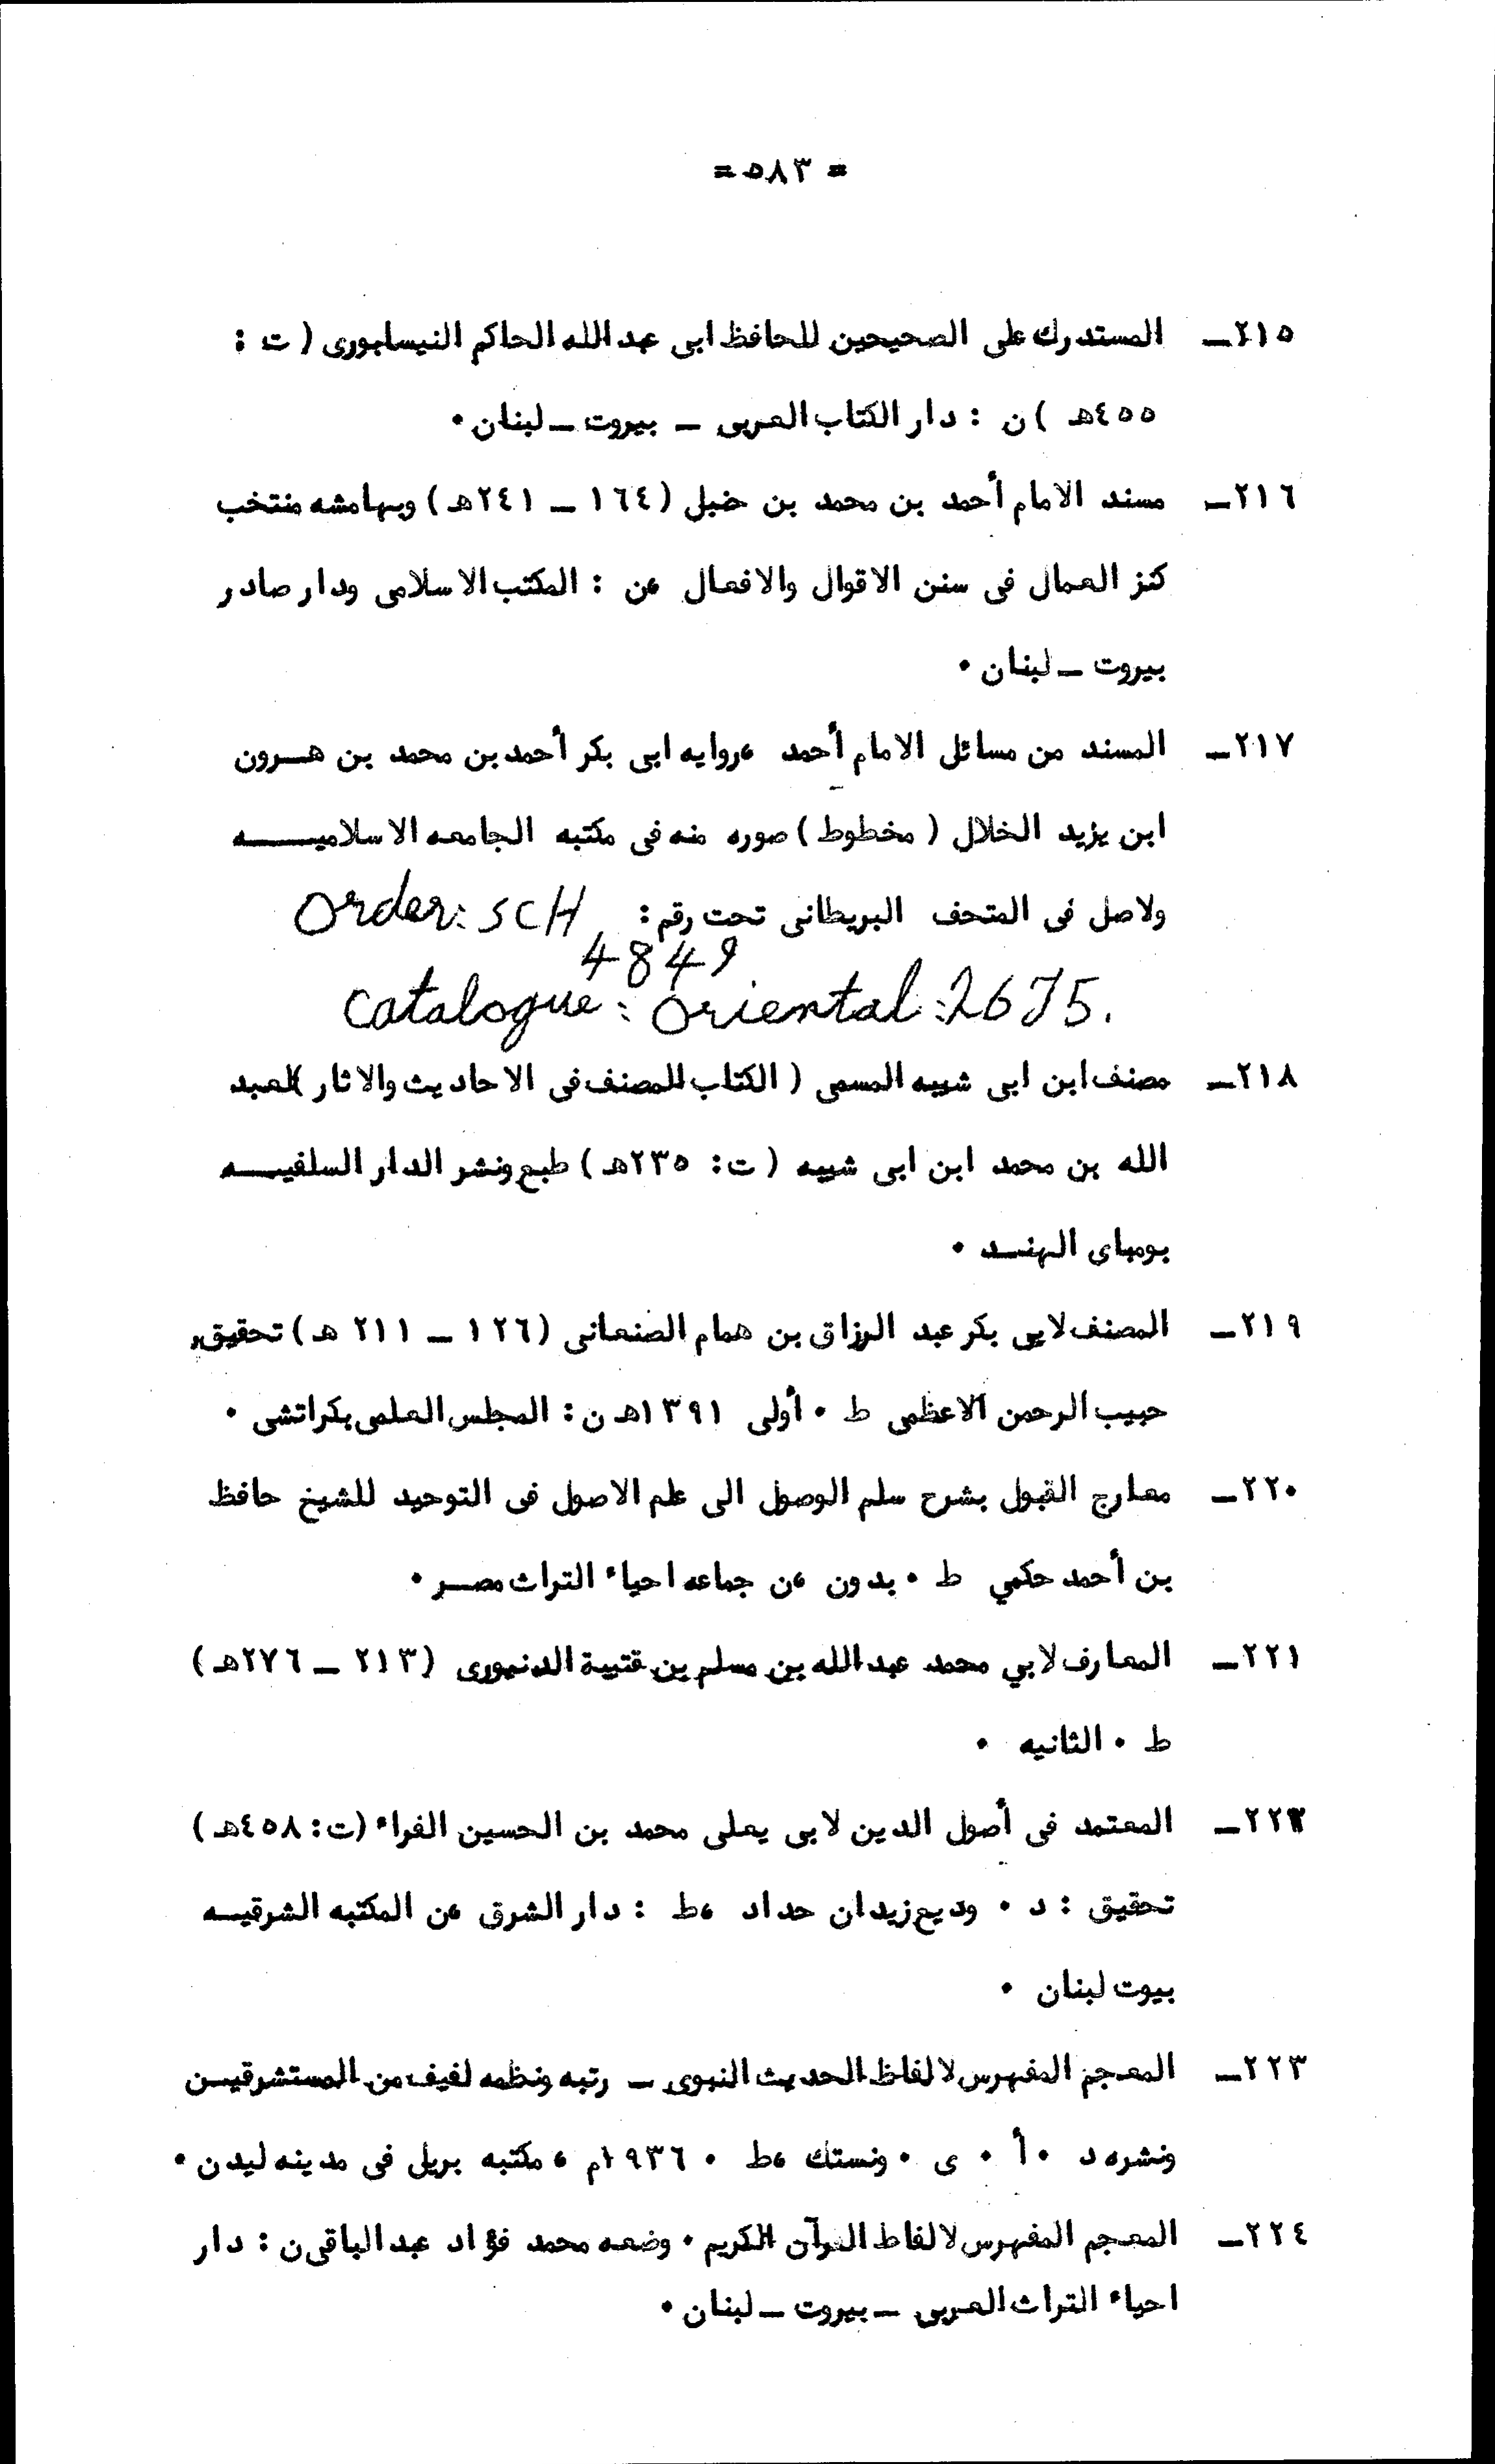 = ٥٨٣ =
٢١٥ــ المستدرك على الصحيحين للحافظ ابى عبد الله الحاكم النيسابورى ( ت :
٤٥٥هـ ) ن : دار الكتاب العربى ــ بيروت ــ لبنان ٠
٢١٦ــ مسند الامام أحمد بن محمد بن حنبل (١٦٤ ــ ٢٤١هـ) وبهامشه منتخب
كنز العمال فى سنن الاقوال والافعال ،ن : المكتب الاسلامى ودار صادر
بيروت ــ لبنان ٠
٢١٧ــ المسند من مسائل الامام أحمد ،روايه ابى بكر أحمد بن محمد بن هــرون
ابن يزيد الخلال ( مخطوط ) صوره منه فى مكتبه الجامعه الاسلاميــــه
ولاصل فى المتحف البريطانى تحت رقم : Order: SCH
4849
Catalogue: Oriental: 2675.
٢١٨ــ مصنف ابن ابى شيبه المسمى ( الكتاب المصنف فى الاحاديث والاثار )لعبد
الله بن محمد ابن ابى شيبه ( ت : ٢٣٥هـ ) طبع ونشر الدار السلفيــــه
بومباى الهنــد ٠
٢١٩ــ المصنف لابى بكر عبد الرزاق بن همام الصنعانى (١٢٦ ــ ٢١١ هـ) تحقيق،
حبيب الرحمن الاعظمى ط ٠ أولى ١٣٩١هـ ن : المجلس العلمى بكراتشى ٠
٢٢٠ــ معارج القبول بشرح سلم الوصول الى علم الاصول فى التوحيد للشيخ حافظ
بن أحمد حكمي ط ٠ بدون ،ن جماعه احياء التراث مصــر ٠
٢٢١ــ المعارف لابي محمد عبد الله بن مسلم بن قتيبة الدنيورى (٢١٣ ــ ٢٧٦هـ)
ط ٠ الثانيه ٠
٢٢٢ــ المعتمد فى أصول الدين لابى يعلى محمد بن الحسين الفراء (ت : ٤٥٨هـ)
تحقيق : د ٠ وديع زيدان حداد ،ط : دار الشرق ،ن المكتبه الشرقيــه
بيوت لبنان ٠
٢٢٣ــ المعجم المفهرس لالفاظ الحديث النبوى ــ رتبه ونظمه لفيف من المستشرقيــن
ونشره د ٠ أ ٠ ى ٠ ونستك ،ط ٠ ١٩٣٦م ، مكتبه بريل فى مدينه ليدن ٠
٢٢٤ــ المعجم المفهرس لالفاظ القرآن الكريم ٠ وضعه محمد فؤاد عبد الباقى ن : دار
احياء التراث العربى ــ بيروت ــ لبنان ٠